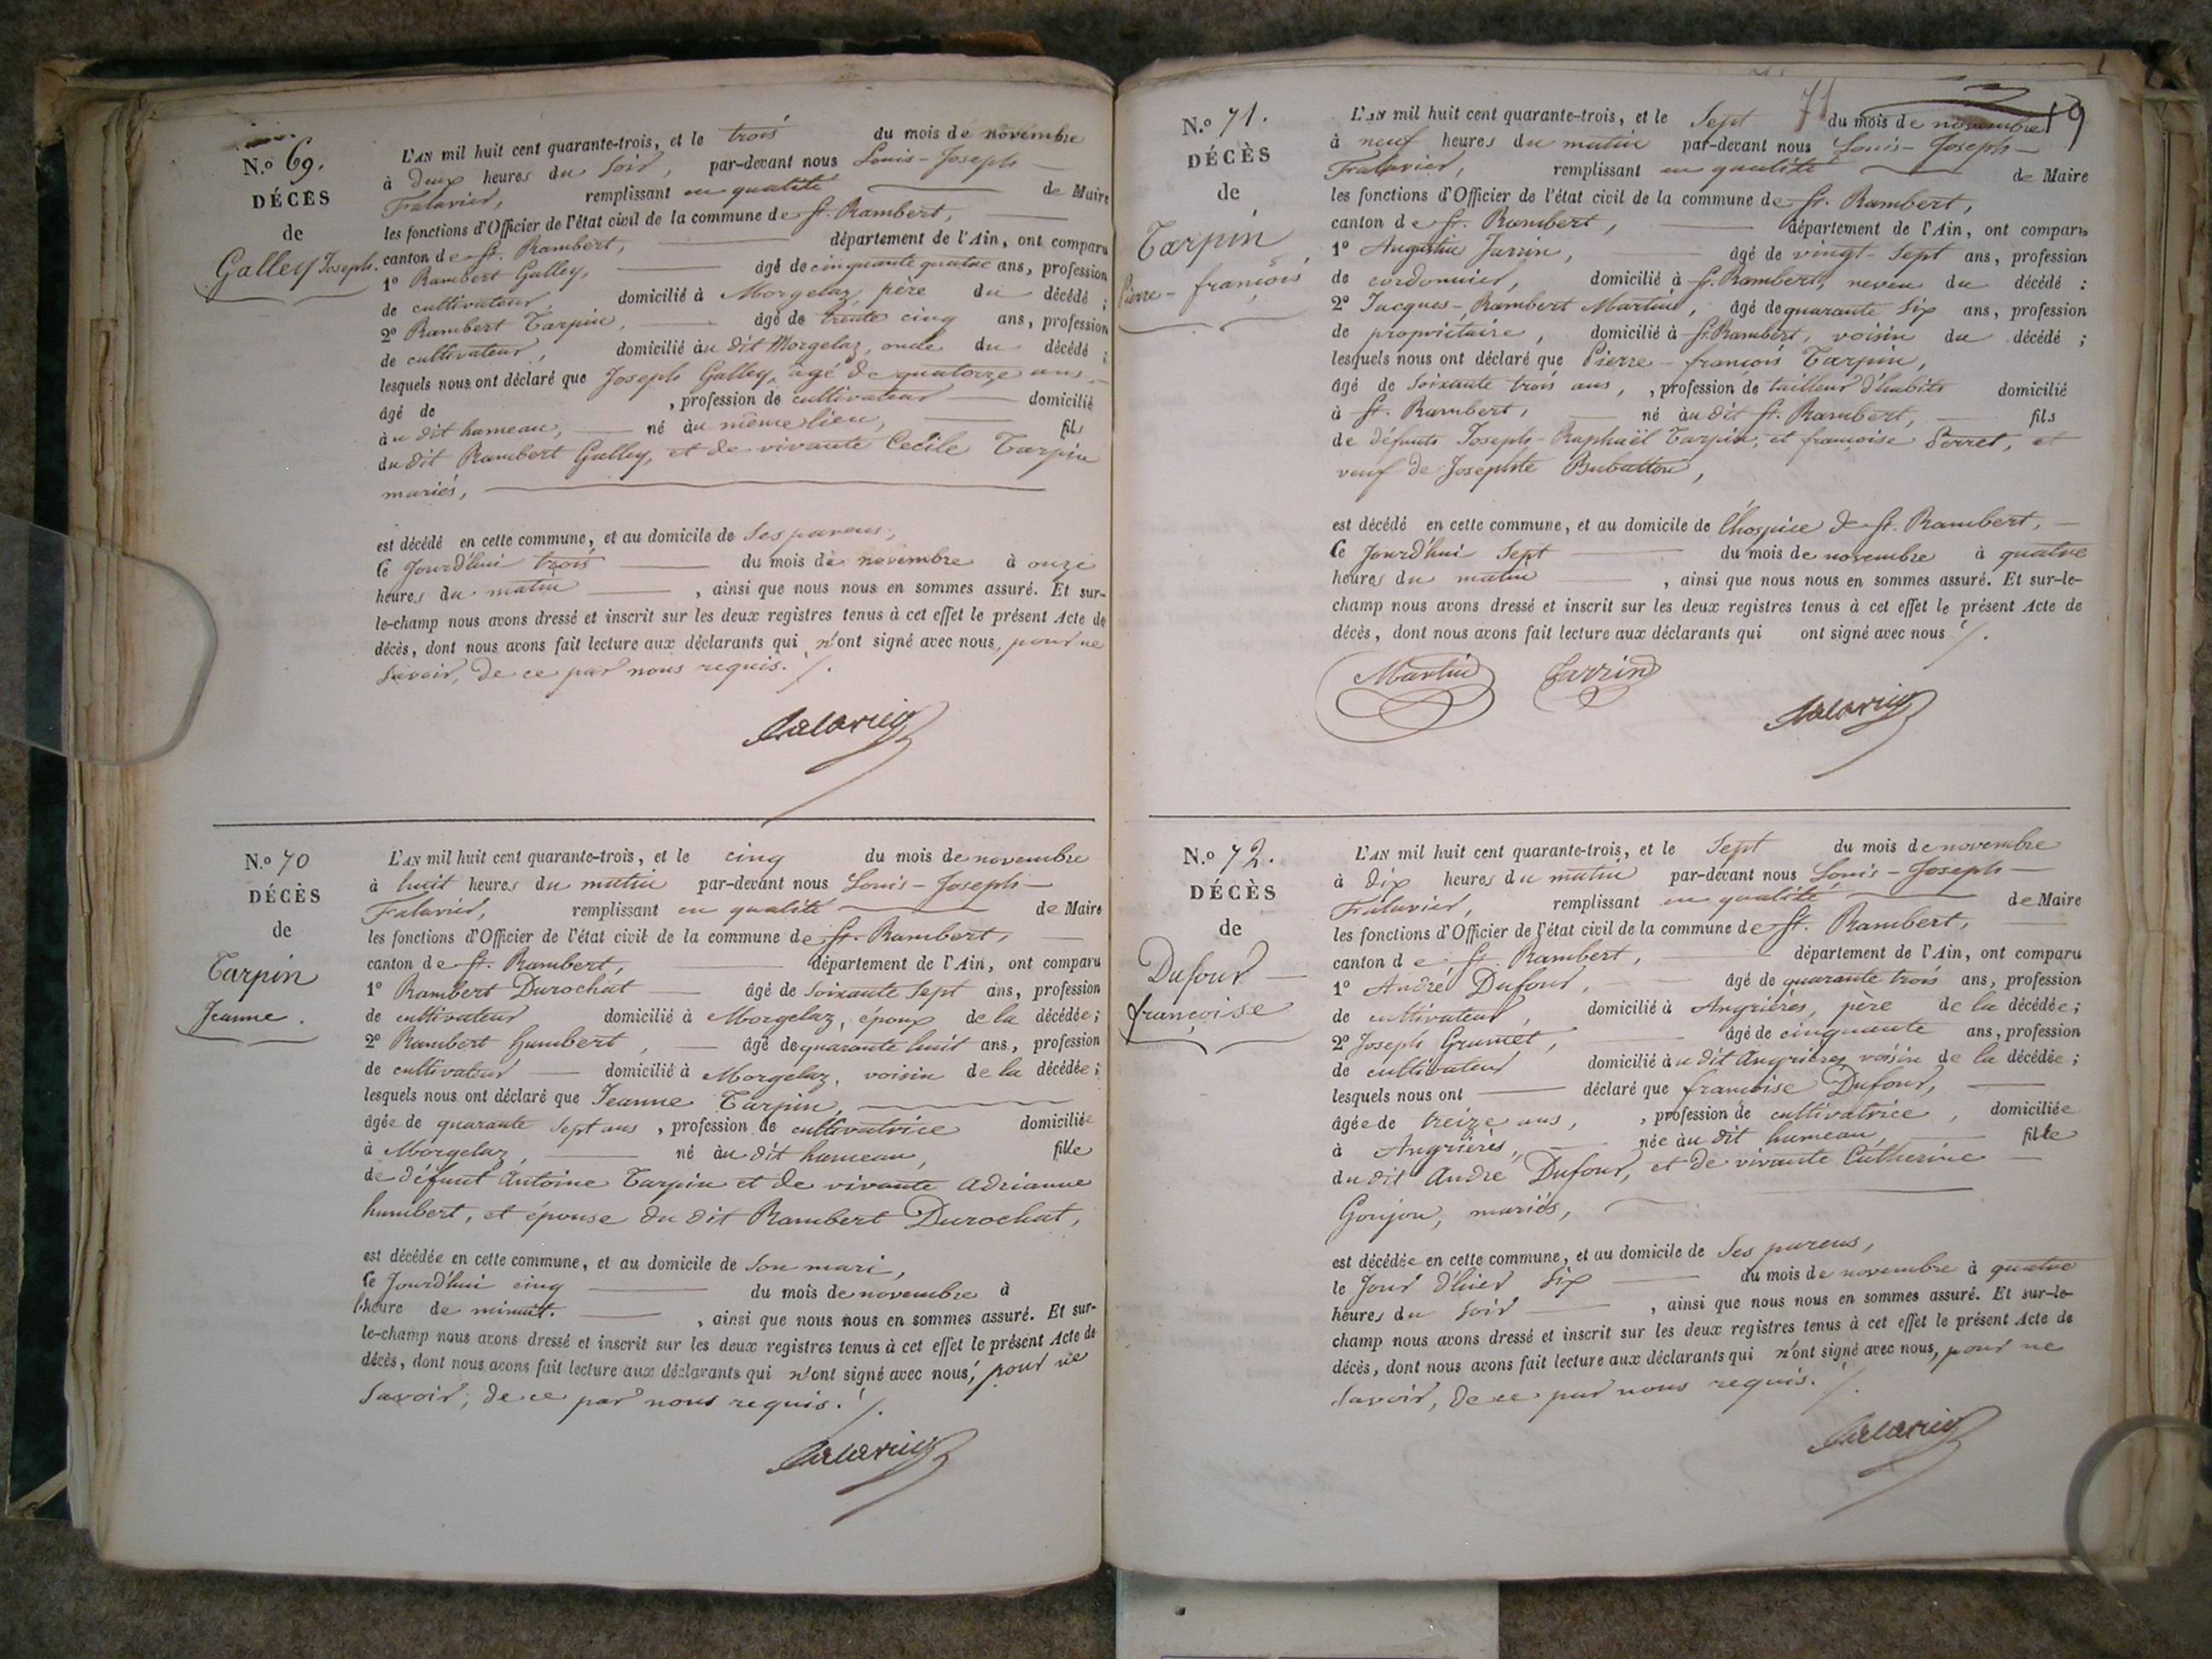 N.o 69.
DÉCÈS
de
Galley Joseph.
L'AN mil huit cent quarante-trois, et le trois du mois de novembre
à deux heures du soir, par-devant nous Louis-Joseph
Falavier, remplissant en qualité de Maire
les fonctions d'Officier de l'état civil de la commune de St. Rambert,
canton de St. Rambert, département de l'Ain, ont comparu
1o Rambert Galley, âgé de cinquante quatre ans, profession
de cultivateur, domicilié à Morgelaz, père du décédé ;
2o Rambert Tarpin, âgé de trente cinq ans, profession
de cultivateur, domicilié au dit Morgelaz, oncle du décédé ;
lesquels nous ont déclaré que Joseph Galley, âgé de quatorze ans,
âgé de , profession de cultivateur domicilié
au dit hameau, né au même lieu, fils
du dit Rambert Galley, et de vivante Cecile Tarpin
mariés,
est décédé en cette commune, et au domicile de ses parens,
le jourd'hui trois du mois de novembre à onze
heures du matin , ainsi que nous nous en sommes assuré. Et sur-
le-champ nous avons dressé et inscrit sur les deux registres tenus à cet effet le présent Acte de
décès, dont nous avons fait lecture aux déclarants qui n'ont signé avec nous, pour ne
savoir, de ce par nous requis. /.
N.o 70
DÉCÈS
de
Tarpin
Jeanne.
L'AN mil huit cent quarante-trois, et le cinq du mois de novembre
à huit heures du matin par-devant nous Louis-Joseph
Falavier, remplissant en qualité de Maire
les fonctions d'Officier de l'état civil de la commune de St. Rambert,
canton de St. Rambert, département de l'Ain, ont comparu
1o Rambert Durochat âgé de soixante sept ans, profession
de cultivateur domicilié à Morgelaz, époux de la décédée ;
2o Rambert humbert, âgé de quarante huit ans, profession
de cultivateur domicilié à Morgelaz, voisin de la décédée ;
lesquels nous ont déclaré que Jeanne Tarpin,
âgée de quarante sept ans , profession de cultivatrice domiciliée
à Morgelaz, né au dit hameau, fille
de défunt Antoine Tarpin et de vivante Adrianne
humbert, et épouse du dit Rambert Durochat,
est décédée en cette commune, et au domicile de son mari,
le jourd'hui cinq du mois de novembre à
l'heure de minuit. , ainsi que nous nous en sommes assuré. Et sur-
le-champ nous avons dressé et inscrit sur les deux registres tenus à cet effet le présent Acte de
décès, dont nous avons fait lecture aux déclarants qui n'ont signé avec nous, pour ne
savoir, de ce par nous requis. /.
71
19
N.o 71.
DÉCÈS
de
Tarpin
Pierre-françois
L'AN mil huit cent quarante-trois, et le sept du mois de novembre
à neuf heures du matin par-devant nous Louis-Joseph
Falavier, remplissant en qualité de Maire
les fonctions d'Officier de l'état civil de la commune de St. Rambert,
canton de St. Rambert, département de l'Ain, ont comparu
1o Augustin Jarrin, âgé de vingt-sept ans, profession
de cordonnier, domicilié à St. Rambert, neveu du décédé :
2o Jacques-Rambert Martin, âgé de quarante six ans, profession
de propriétaire, domicilié à St. Rambert, voisin du décédé ;
lesquels nous ont déclaré que Pierre-françois Tarpin,
âgé de soixante trois ans, , profession de tailleur d'habits domicilié
à St. Rambert, né au dit St. Rambert, fils
de défunts Joseph-Raphaël Tarpin, et françoise Perret, et
veuf de Josephte Bubatton,
est décédé en cette commune, et au domicile de l'hospice de St. Rambert,
le jourd'hui sept du mois de novembre à quatre
heures du matin , ainsi que nous nous en sommes assuré. Et sur-le-
champ nous avons dressé et inscrit sur les deux registres tenus à cet effet le présent Acte de
décès, dont nous avons fait lecture aux déclarants qui ont signé avec nous /.
Martin Jarrin
N.o 72.
DÉCÈS
de
Dufour
françoise
L'AN mil huit cent quarante-trois, et le sept du mois de novembre
à dix heures du matin par-devant nous Louis-Joseph
Falavier, remplissant en qualité de Maire
les fonctions d'Officier de l'état civil de la commune de St. Rambert,
canton de St. Rambert, département de l'Ain, ont comparu
1o André Dufour, âgé de quarante trois ans, profession
de cultivateur, domicilié à Angrières, père de la décédée ;
2o Joseph Grumet, âgé de cinquante ans, profession
de cultivateur domicilié au dit Angrières, voisin de la décédée ;
lesquels nous ont déclaré que françoise Dufour,
âgée de treize ans, , profession de cultivatrice, domiciliée
à Angrières, née au dit hameau, fille
du dit André Dufour, et de vivante Catherine
Goujon, mariés,
est décédée en cette commune, et au domicile de ses parens,
le jour d'hier six du mois de novembre à quatre
heures du soir , ainsi que nous nous en sommes assuré. Et sur-le-
champ nous avons dressé et inscrit sur les deux registres tenus à cet effet le présent Acte de
décès, dont nous avons fait lecture aux déclarants qui n'ont signé avec nous, pour ne
savoir, de ce par nous requis. /.